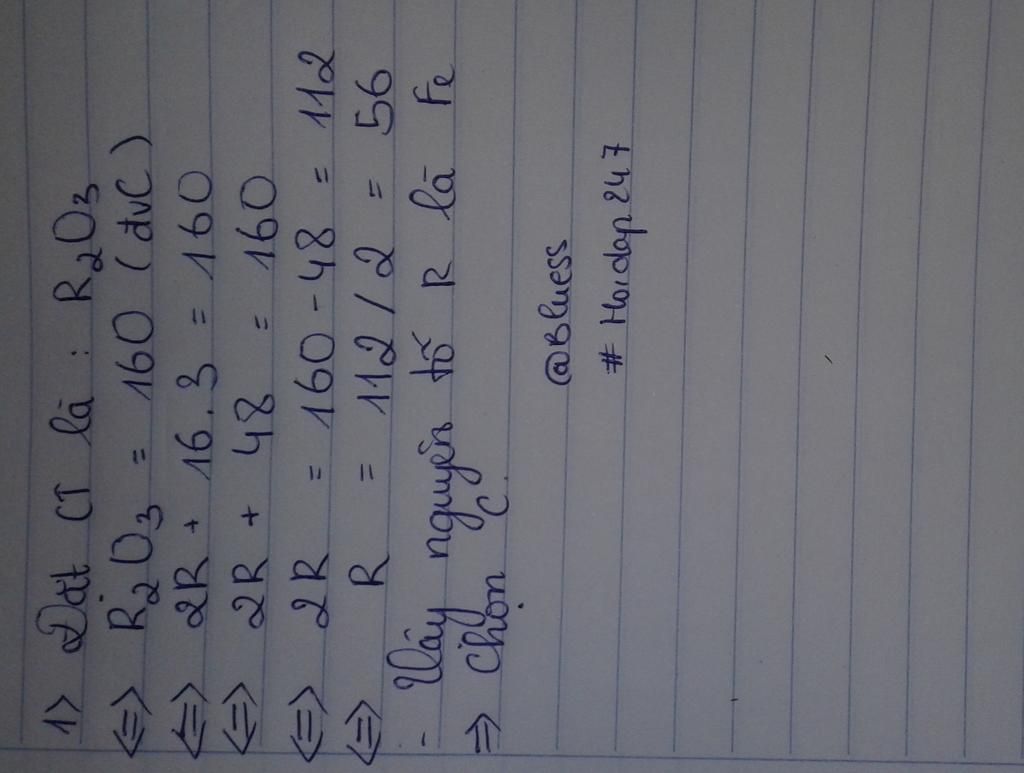 1> Đặt CT là : R2O3
<=> R2O3 = 160 (đvC)
<=> 2R + 16.3 = 160
<=> 2R + 48 = 160
<=> 2R = 160 - 48 = 112
<=> R = 112/2 = 56
- Vậy nguyên tố R là Fe
=> Chọn C.
@Bluess
# Hoidap247